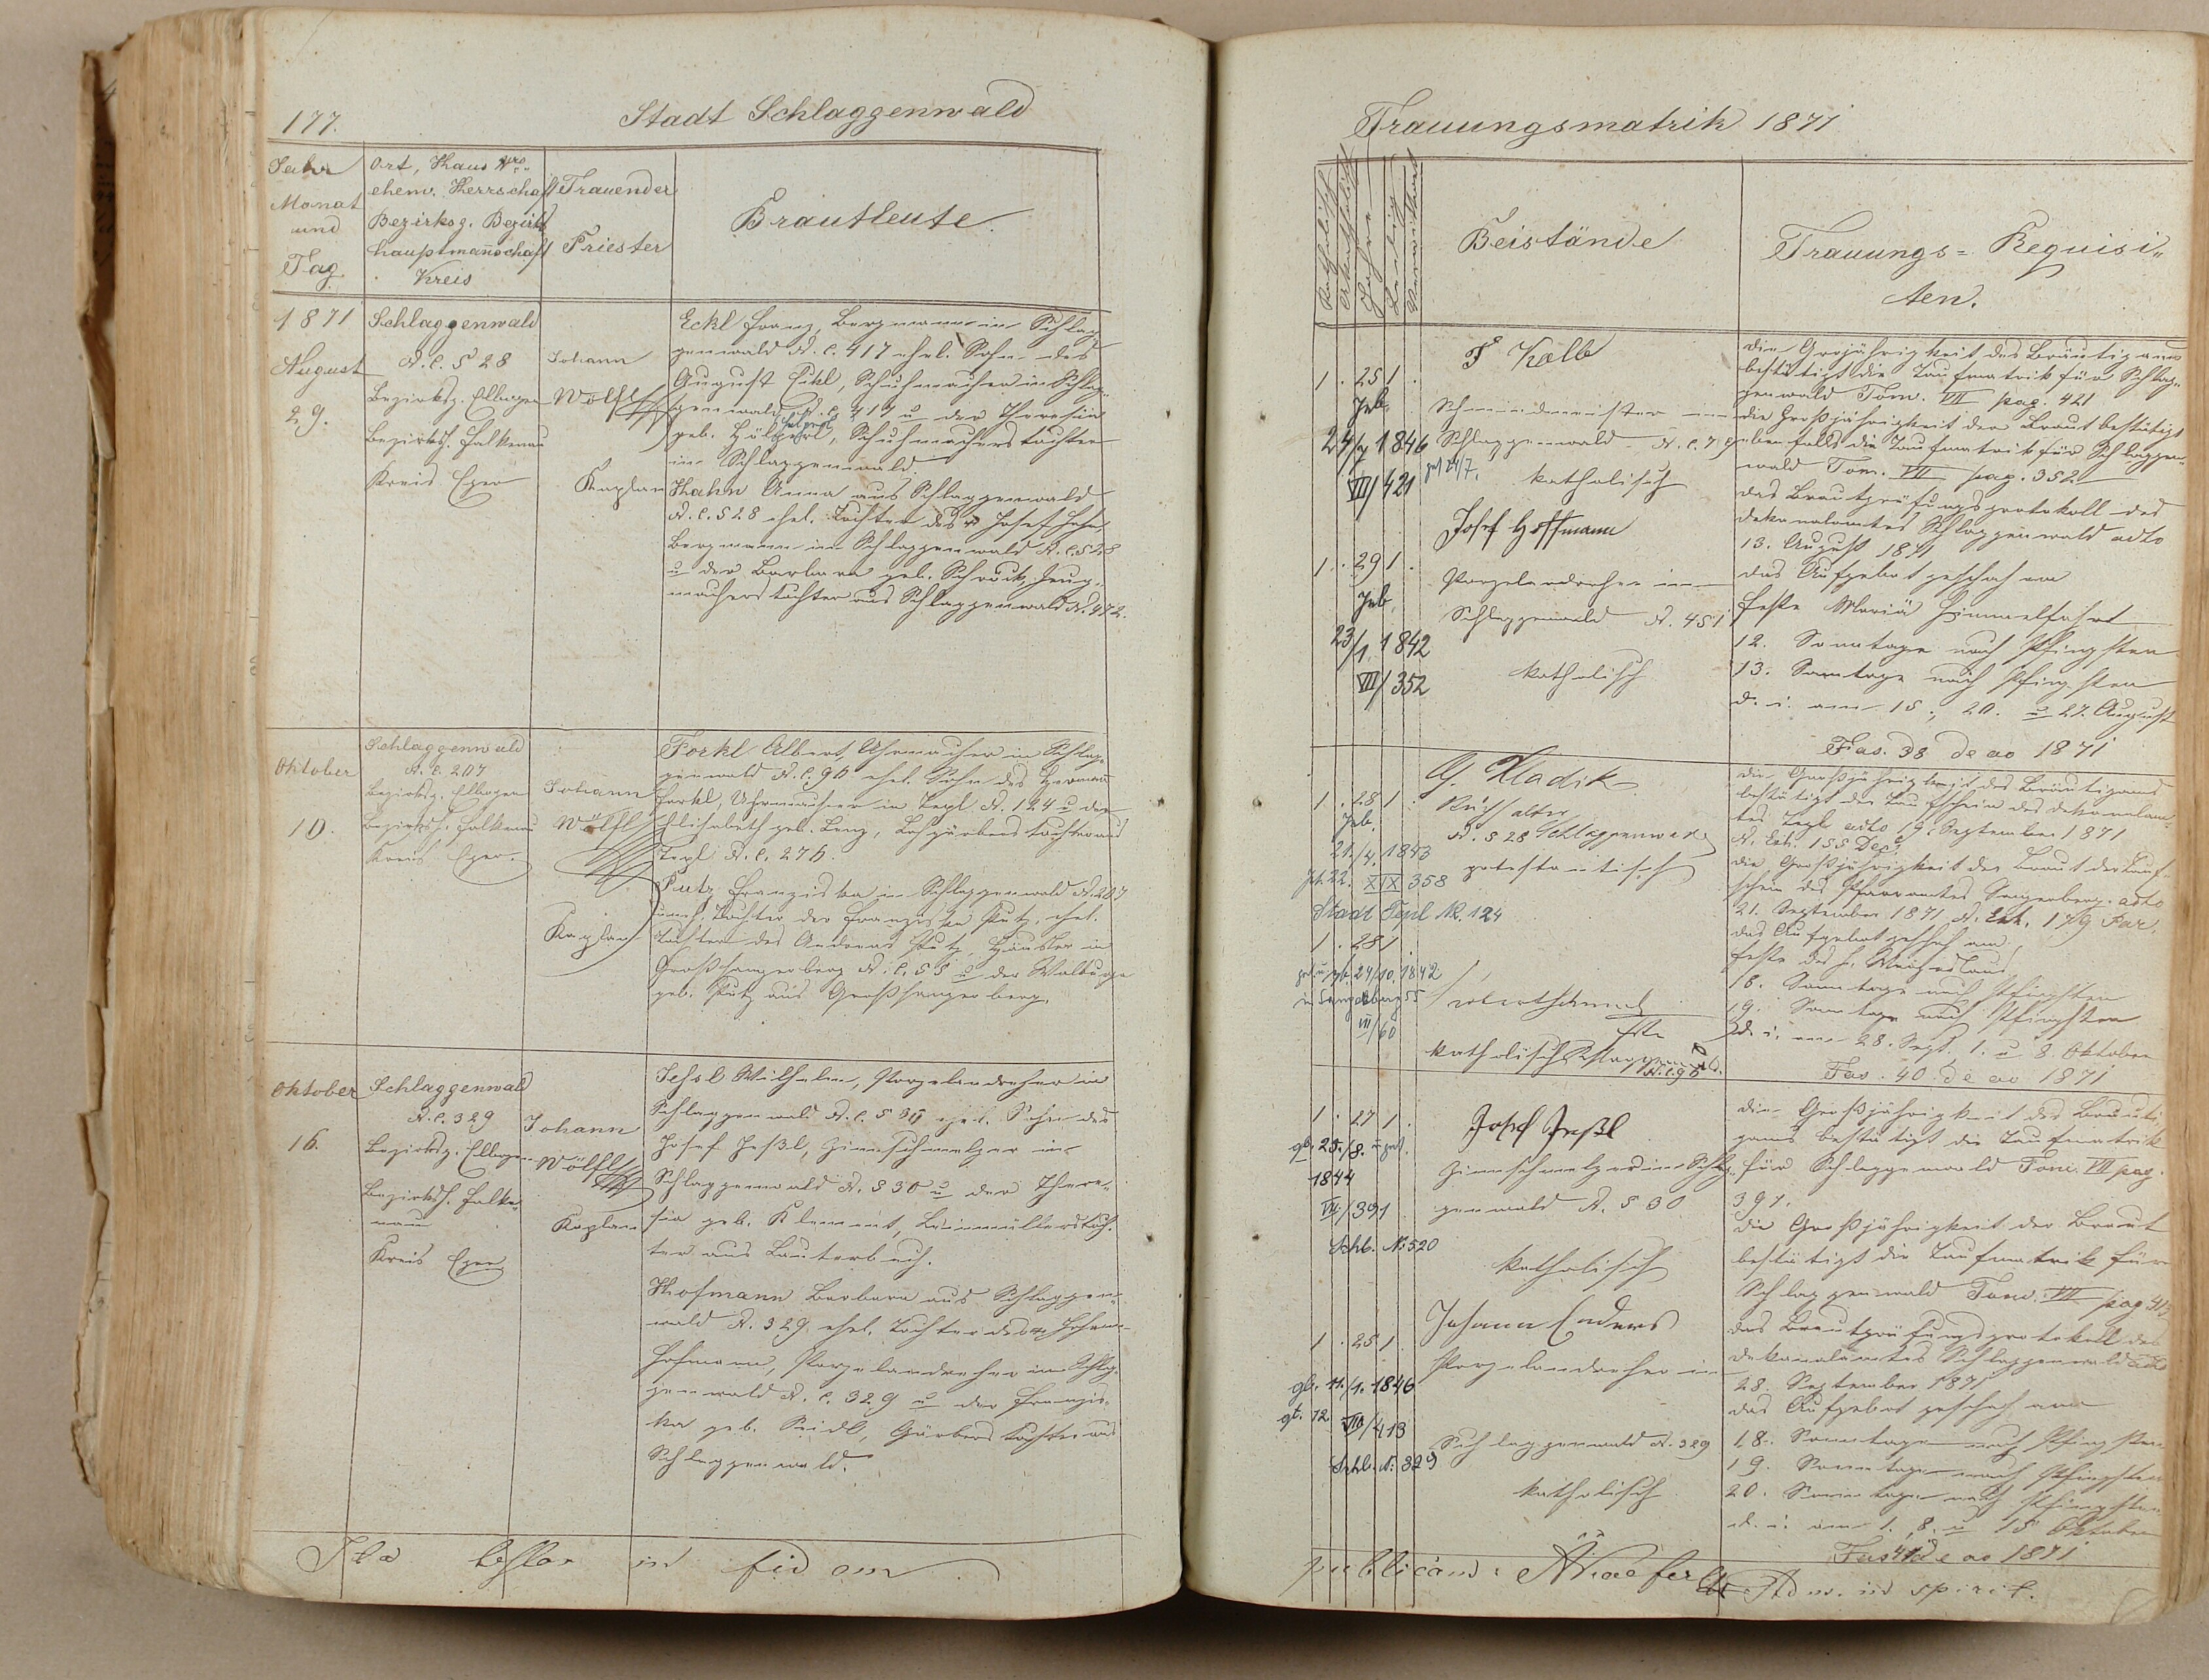 177.
Stadt Schlaggenwald
Jahr
Monat
und
Tag
Ort, Haus Nro
ehem. Herrschaft
Bezirksg. Bezirks
hauptmannschaft
Kreis
Trauender
Priester
Brautleute.
1871
August
29.
Schlaggenwald
N.C. 528
Bezirksg. Elbogen
Bezirksh. Falkenau
Kreis Eger
Johann
Wölfl
Kaplan
Eckl Franz, Bergmann in Schlag
genwald N.C. 417 ehel. Sohn des
August Eckl, Schuhmacher in Schlag
genwald N.C. 417 u der Theresia
geb. Schuhmacherstochter
in Schlaggenwald.
Hahn Anna aus Schlaggenwald
N.C. 528 ehel. Tochter des Josef Hahn
Bergmann in Schlaggenwald N.C. 528
u der Barbara geb. Zeug-
macherstochter aus Schlaggenwald N. 472.
Oktober
10.
Schlaggenwald
N.C. 207
Bezirksg. Elbogen
Bezirksh. Falkenau
Kreis Eger.
Johann
Wölfl
Kaplan
Forkl Albert, Uhrmacher in Schlag
genwald N.C. 96 ehel. Sohn des Hermann
Forkl, Uhrmacher in Tepl N. 124 u der
Elisabeth geb. Lenz, Lohgärbers Tochter aus
Tepl N.C. 276.
Putz Franziska in Schlaggenwald N. 207
uneh. Tochter der Franziska Putz, ehel.
Tochter des Andreas Putz, Häusler in
Großsangerberg N.C. 55 u der Walburga
geb. Putz aus Großsangerberg.
Oktober
16.
Schlaggenwald
N.C. 329
Bezirksg. Elbogen
Bezirksh. Falke-
nau
Kreis Eger
Johann
Wölfl
Kaplan
Wilhelm, Porzelandreher in
Schlaggenwald N.C. ehel. Sohn des
Josef Zinnschmelzer in
Schlaggenwald N. 530 u der There-
sia geb. Klement,
ter aus Lauterbach.
Hofmann Barbara aus Schlaggen-
wald N. 329 ehel. Tochter des Johann
Hofmann, Porzelandreher in Schlag-
genwald N.C. 329 u der Franzis-
ka geb. Seidl, Gärbers Tochter aus
Schlaggenwald.
in fidem
Trauungsmatrik 1871
Beistände
Trauungs= Requisi„
ten.
1 . 25 1 .
geb.
24/7 1846
VII/421
get 24/7.
F Kolb
Schlaggenwald
katholisch
1 . 29 1 .
geb.
23/1. 1842
VII/352
Josef Hoffmann
Porzelandreher in
Schlaggenwald N. 451
katholisch
Die Großjährigkeit des Bräutigams
bestätigt die Taufmatrik für Schlag-
genwald Tom. VII pag. 421
die Großjährigkeit der Braut bestätigt
ebenfalls die Taufmatrik für Schlaggen-
wald Tom. VII pag. 352
das Brautprüfungsprotokoll des
Dekanalamtes Schlaggenwald adto
13. August 1871
das Aufgebot geschah am
Feste Mariä Himmelfahrt
12. Sonntage nach Pfingsten
13. Sonntage nach Pfingsten
d. i. am 15., 20. u 27. August
Fas. 38 de ao 1871
1 . 28 1 .
geb.
21./4. 1843
XIX 358
Stadt Tepl N. 124
Hladik
N. 528 Schlaggenwald
protestantisch
1 . 28 1
24/10. 1842
VII/60
katholisch Schlaggenwald
N.C. 96
Die Großjährigkeit des Bräutigams
bestätigt der Taufschein des Dekanalam-
tes Tepl adto 19. September 1871
N. Exh. 155 Dec.
die Großjährigkeit der Braut der Tauf-
schein des Pfarramtes Sangerberg adto
21. September 1871 N. Exh. 179 Par.
das Aufgebot geschah am
Feste des h. Wenzeslaus
18. Sonntage nach Pfingsten
19. Sonntage nach Pfingsten
d. i. am 28. Sept., 1. u 8. Oktober
Fas. 40 de ao 1871
1 . 27 1 .
gb. 25./8. u get.
1844
VII/391
Schl. N. 520
Josef
Zinnschmelzer in Schlag-
genwald N. 530
katholisch
1 . 25 1
gb. 11./1. 1846
gt. 12.
VII/413
Schl. N. 329
Johann Enders
Porzelandreher in
Schlaggenwald N. 329
katholisch
die Großjährigkeit des Bräuti
gams bestätigt die Taufmatrik
für Schlaggenwald Tom. VII pag.
391.
die Großjährigkeit der Braut
bestätigt die Taufmatrik für
Schlaggenwald Tom. VII pag. 413
das Brautprüfungsprotokoll des
Dekanalamtes Schlaggenwald adto
28. September 1871
das Aufgebot geschah am
18. Sonntage nach Pfingsten
19. Sonntage nach Pfingsten
20. Sonntage nach Pfingsten
d. i. am 1., 8. u 15 Oktober
Fas 41 de ao 1871
Adm. in spirit.